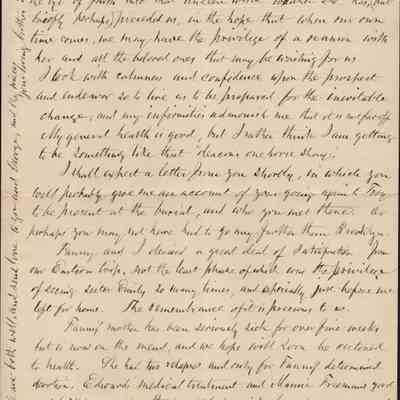 the eye of faith into that unseen world whither she has, (but
briefly perhaps,) preceded us, in the hope that when our own
time comes, we may have the privilege of a reunion with
her and all the beloved ones that may be waiting for us.
I look with calmness and confidence upon the prospect
and endeavor so to live as to be prepared for the inevitable
change, and my infirmities admonish me that it is not far off
My general health is good, but I rather think I am getting
to be something like that "deacons one horse shay".
I shall expect a letter from you shortly, in which you
will probably give me an account of your going again to Troy
to be present at the burial, and who you met there. Or
perhaps you may not have had to go any further than Brooklyn.
Fanny and I derived a great deal of satisfaction from
our Eastern trip, not the least phase of which was the privilege
of seeing sister Emily so many times, and especially just before we
left for home. The remembrance of it is precious to us.
Fanny's mother has been seriously sick for over five weeks
but is now on the mend, and we hope will soon be restored
to health. She had two relapses and only for Fanny's determined
devotion, Edwards medical treatment and Mamie Freemans good
We are both well, and send love to you and
your loving brother